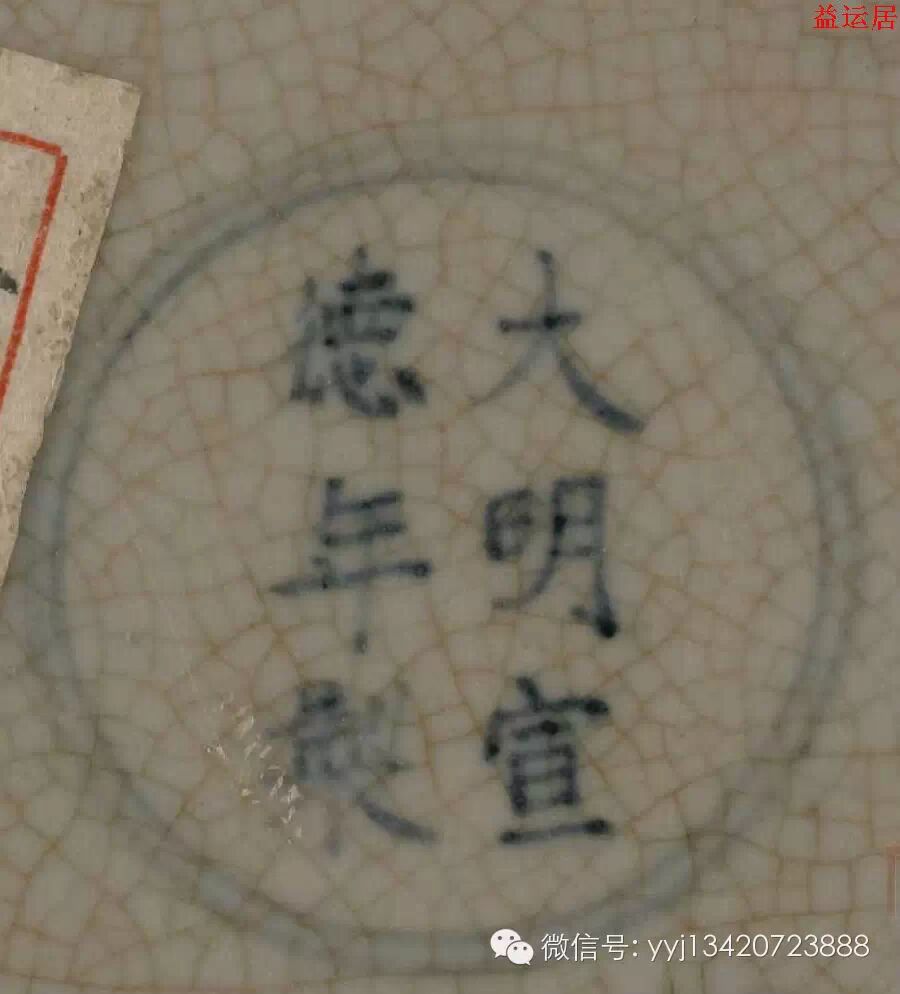 益运居
大明宣
德年製
微信号: yyj13420723888